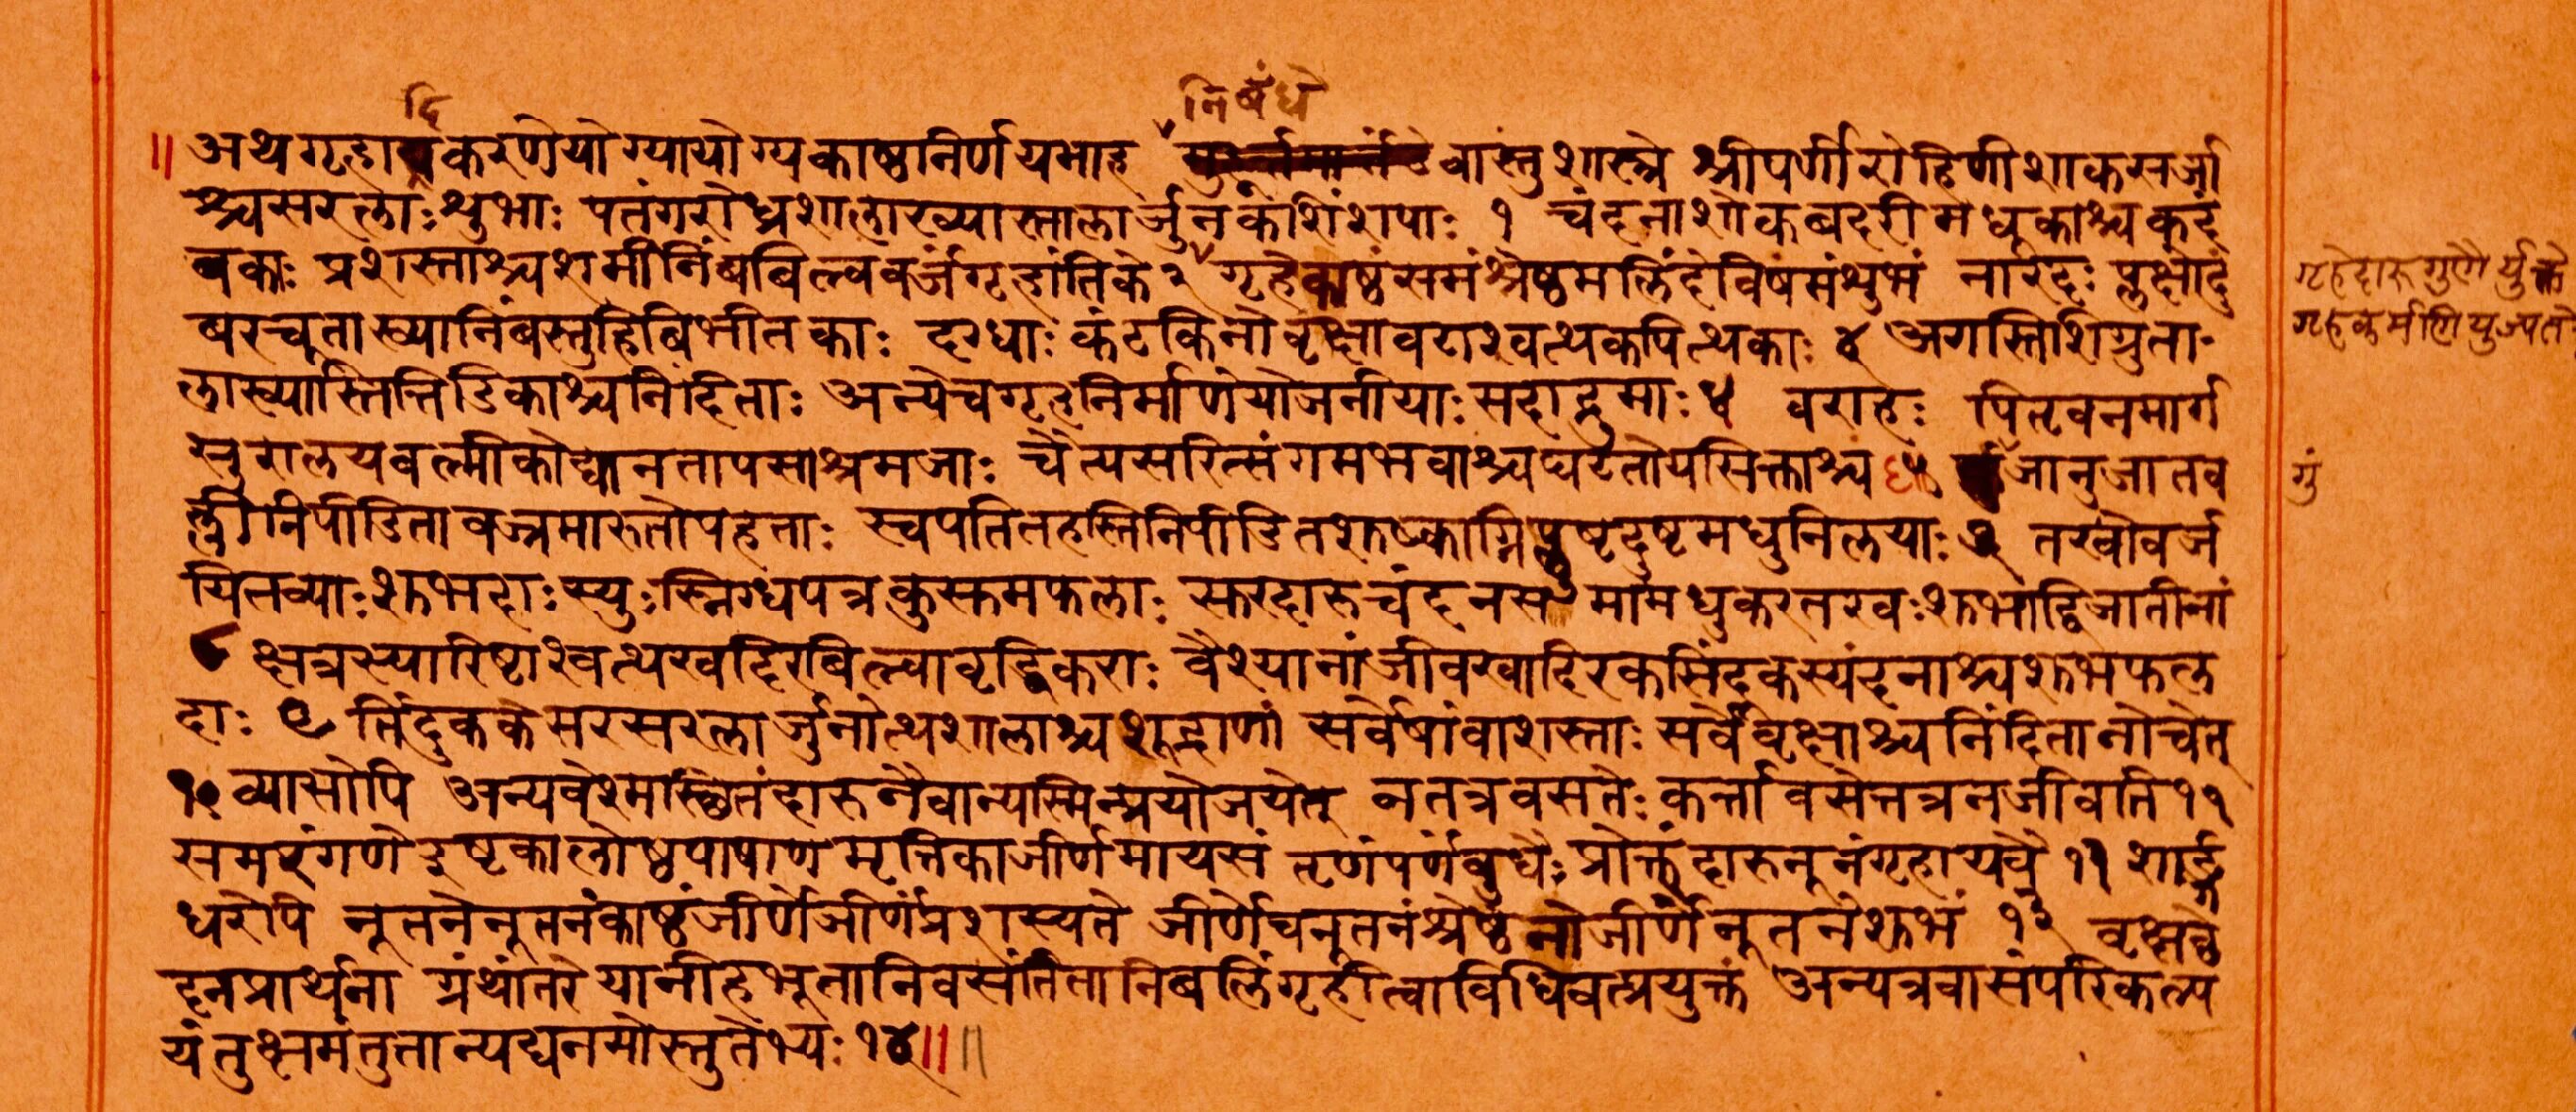 दि
निबंधे
॥ अथ गृहाद्यकरणेयोग्यायोग्यकाष्ठनिर्णयमाह वास्तुशास्त्रे श्रीपर्णीरोहिणीशाकसर्जा
श्चसरलाः शुभाः पतंगरोध्रशालाख्यास्तालार्जुनकशिंशपाः १ चंदनाशोकबदरीमधूकाश्चकदं
बकाः प्रशस्ताश्चशमीनिंबबिल्ववर्जंगृहांतिके २ गृहेकाष्ठंसमंश्रेष्ठमलिंदेविषमंशुभं नारदः प्लक्षोदुं
बरचूताख्यानिंबस्नुहिबिभीतकाः दग्धाः कंटकिनोवृक्षावटाश्वत्थकपित्थकाः ४ अगस्तिशिग्रुता
लाख्यास्तिंत्तिडिकाश्चनिंदिताः अन्येचगृहनिर्माणेयोजनीयाः सदाद्रुमाः ५ वराहः पितृवनमार्ग
सुरालयवल्मीकोद्यानतापसाश्रमजाः चैत्यसरित्संगमभवाश्चघटतोयसिक्ताश्च ६ जानुजातव
ल्लीनिपीडितावज्रमारुतोपहताः स्वपतितहस्तिनिपीडितशुष्काग्निप्लुष्टदुष्टमधुनिलयाः ७ तरवोवर्ज
यितव्याः शुभदाः स्युः स्निग्धपत्रकुसुमफलाः सुरदारुचंदनसमीमधुकरतरवः शुभाद्विजातीनां
८ क्षत्रस्यारिष्टाश्वत्थखदिरबिल्वावृद्धिकराः वैश्यानांजीवखादिरकसिंदकस्यंदनाश्चशुभफल
दाः ९ तिंदुककेसरसरलार्जुनोत्थशालाश्चशूद्राणां सर्वेषांवाशस्ताः सर्वेवृक्षाश्चनिंदितानोचेत्
१० व्यासोपि अन्यवेश्मस्थितंदारुनैवान्यस्मिन्प्रयोजयेत् नतत्रवसतेः कर्त्तावसेत्तत्रनजीवति ११
समरंगणे इष्टकालोष्ठपाषाणमृत्तिकाजीर्णमायसं तृणंपर्णंबुधैः प्रोक्तंदारुनूनंगृहायवै १२ शार्ङ्ग
धरोपि नूतनेनूतनंकाष्ठंजीर्णेजीर्णंप्रशस्यते जीर्णेचनूतनंश्रेष्ठंनोजीर्णंनूतनेशुभं १३ वृक्षछे
दनप्रार्थना ग्रंथांतरे यानीहभूतानिवसंतितानिबलिंगृहीत्वाविधिवत्प्रयुक्तं अन्यत्रवासंपरिकल्प
यंतुक्षमंतुतान्यद्यनमोस्तुतेभ्यः १४ ॥ ॥
गृहेदारुगुणैर्युक्तं
गृहकर्मणियुज्यते
गुं